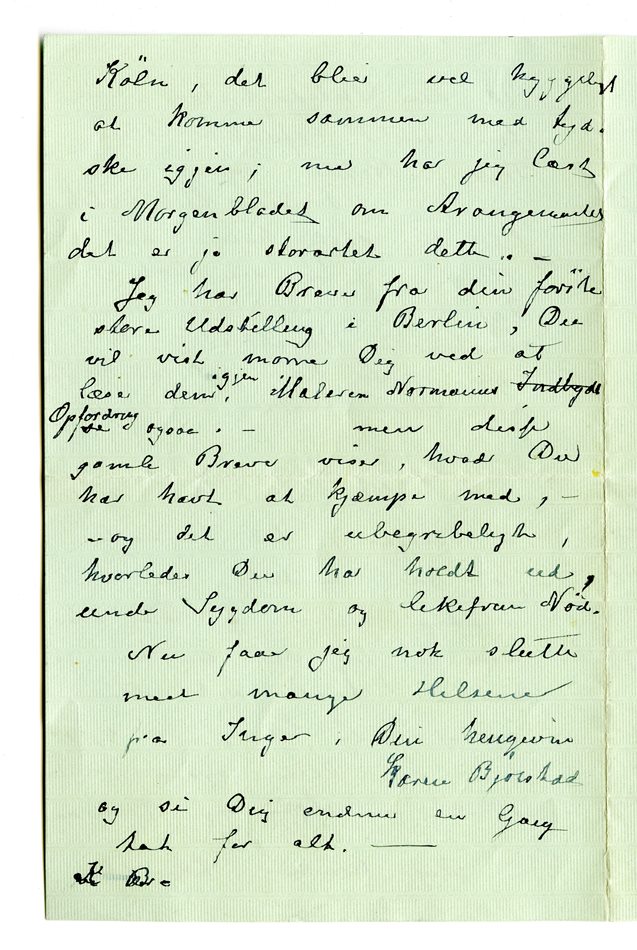 Köln, det blir vel hyggeligt
at komme sammen med tyd-
ske igjen; nu har jeg læst
i Morgenbladet om Arangementet
det er jo storartet dette. –
Jeg har Breve fra din første
store Udstilling i Berlin, Du
vil vist more Dig ved at
læse dem igjen, Maleren Normanns Indbyd
Opfordring se ogsaa. – men disse
gamle Breve viser, hvad Du
har havt at kjæmpe med, –
– og det er ubegribeligt,
hvorledes Du har holdt ud,
under Sygdom og Nød.
Nu faar jeg nok slutte
med mange Hilsener
fra Inger, Din hengivne
Karen Bjølstad
og si Dig endnu en Gang
tak for alt. —
K B.